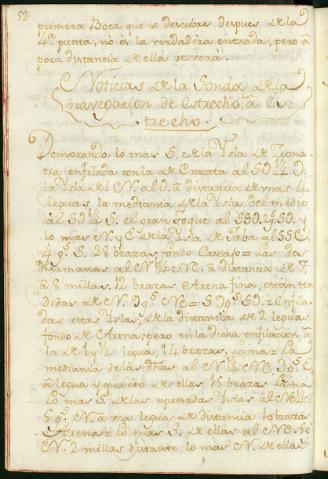 52.
primera Boca que se descubre despues de la
4ª punta, no es la verdadera entrada, pero à
poca distancia de ella se verá.
Noticias de la Sonda de la
navegacion de Estrecho, à Es
trecho.
Demorando lo mas S. de la Ysla de
tra enfilada con la de Cracata al SO¼ O.
la Ysla de N. al O. a distancia de mas 4
leguas, la mediania de la Ysla del medio
al SO¼ S. el gran Toque al SSO. 2º SO. y
lo mas N. y E. de la Ysla de Taba al SSE
4 g.s S. 28 brazas, fondo Cascajo = Las dos
Hermanas al N¼ NE. à distancia de 7,
à 8 millas. 12 brazas Arena fina, estàn ten
didas de N. NE = S. SO. = Enfila
das estas Yslas, de la distancia de 2 leguas
fondo de Arena; pero en la dicha enfilacion, à
la de 1½ legua, 14 brazas, Lama = La
mediania de las dhas al N¼ NE.
à legua y quarto de ellas 15 brazas Lama
Lo mas S. de las expresadas Yslas al NE
5 g.s N. à una legua de distancia 10 brazas,
Arena = Lo mas S. de ellas al NE. 5º
N. 2 millas distante, lo mas N. de ellas